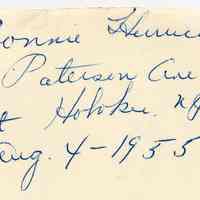 Connie
Paterson Ave
Hoboken. NJ
Aug. 4-1955